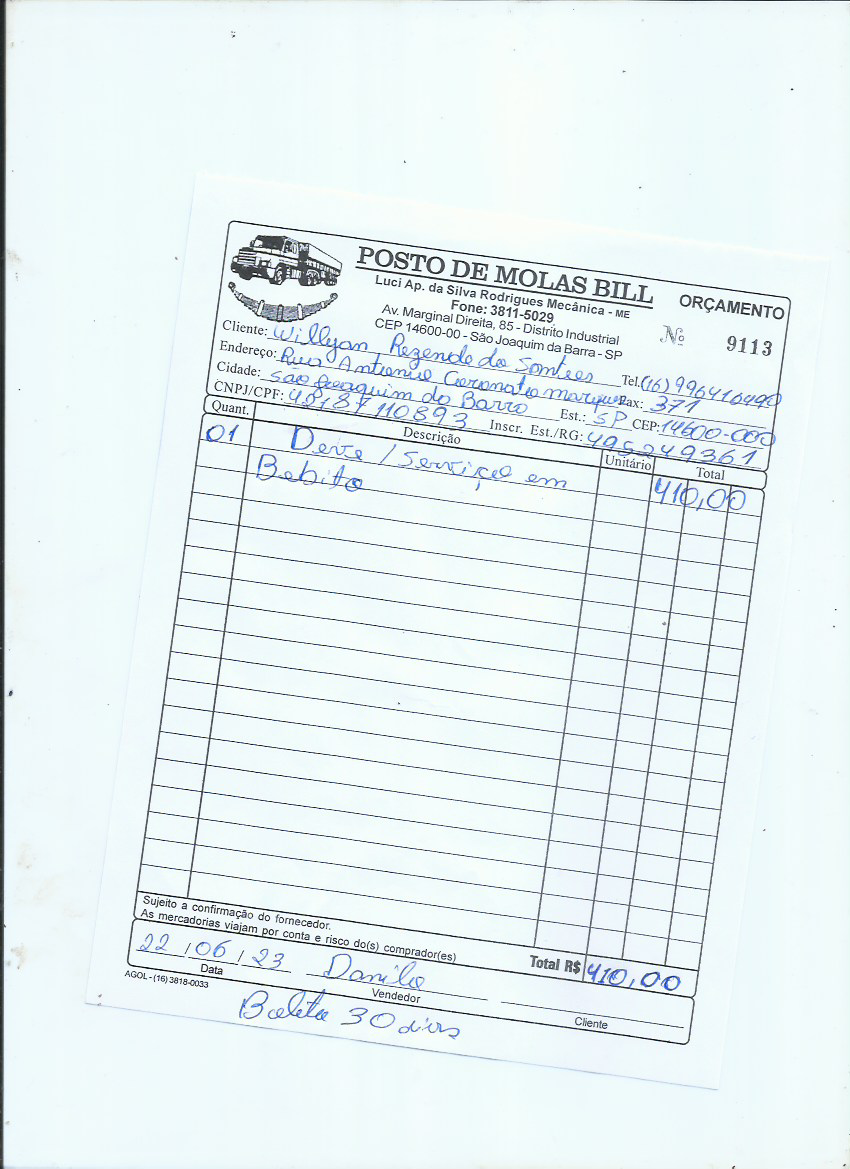 POSTO DE MOLAS BILL
ORÇAMENTO
Luci Ap. da Silva Rodrigues Mecânica - ME
Fone: 3811-5029
Av. Marginal Direita, 85 - Distrito Industrial
CEP 14600-00 - São Joaquim da Barra - SP
Nº 9113
Cliente: Willyan Rezende do Tel. (16) 996416490
Endereço: Rua Antonio Coronato marques Fax: 371
Cidade: São Joaquim do Barro Est.: SP CEP: 14600-000
CNPJ/CPF: 48187110893 Inscr. Est./RG: 495249361
Quant. Descrição Unitário Total
01 Deve / Serviço em 410,00
Bebito
Sujeito a confirmação do fornecedor.
As mercadorias viajam por conta e risco do(s) comprador(es)
Total R$ 410,00
22 / 06 / 23 Danilo
Data Vendedor Cliente
AGOL - (16) 3818-0033
30 dias